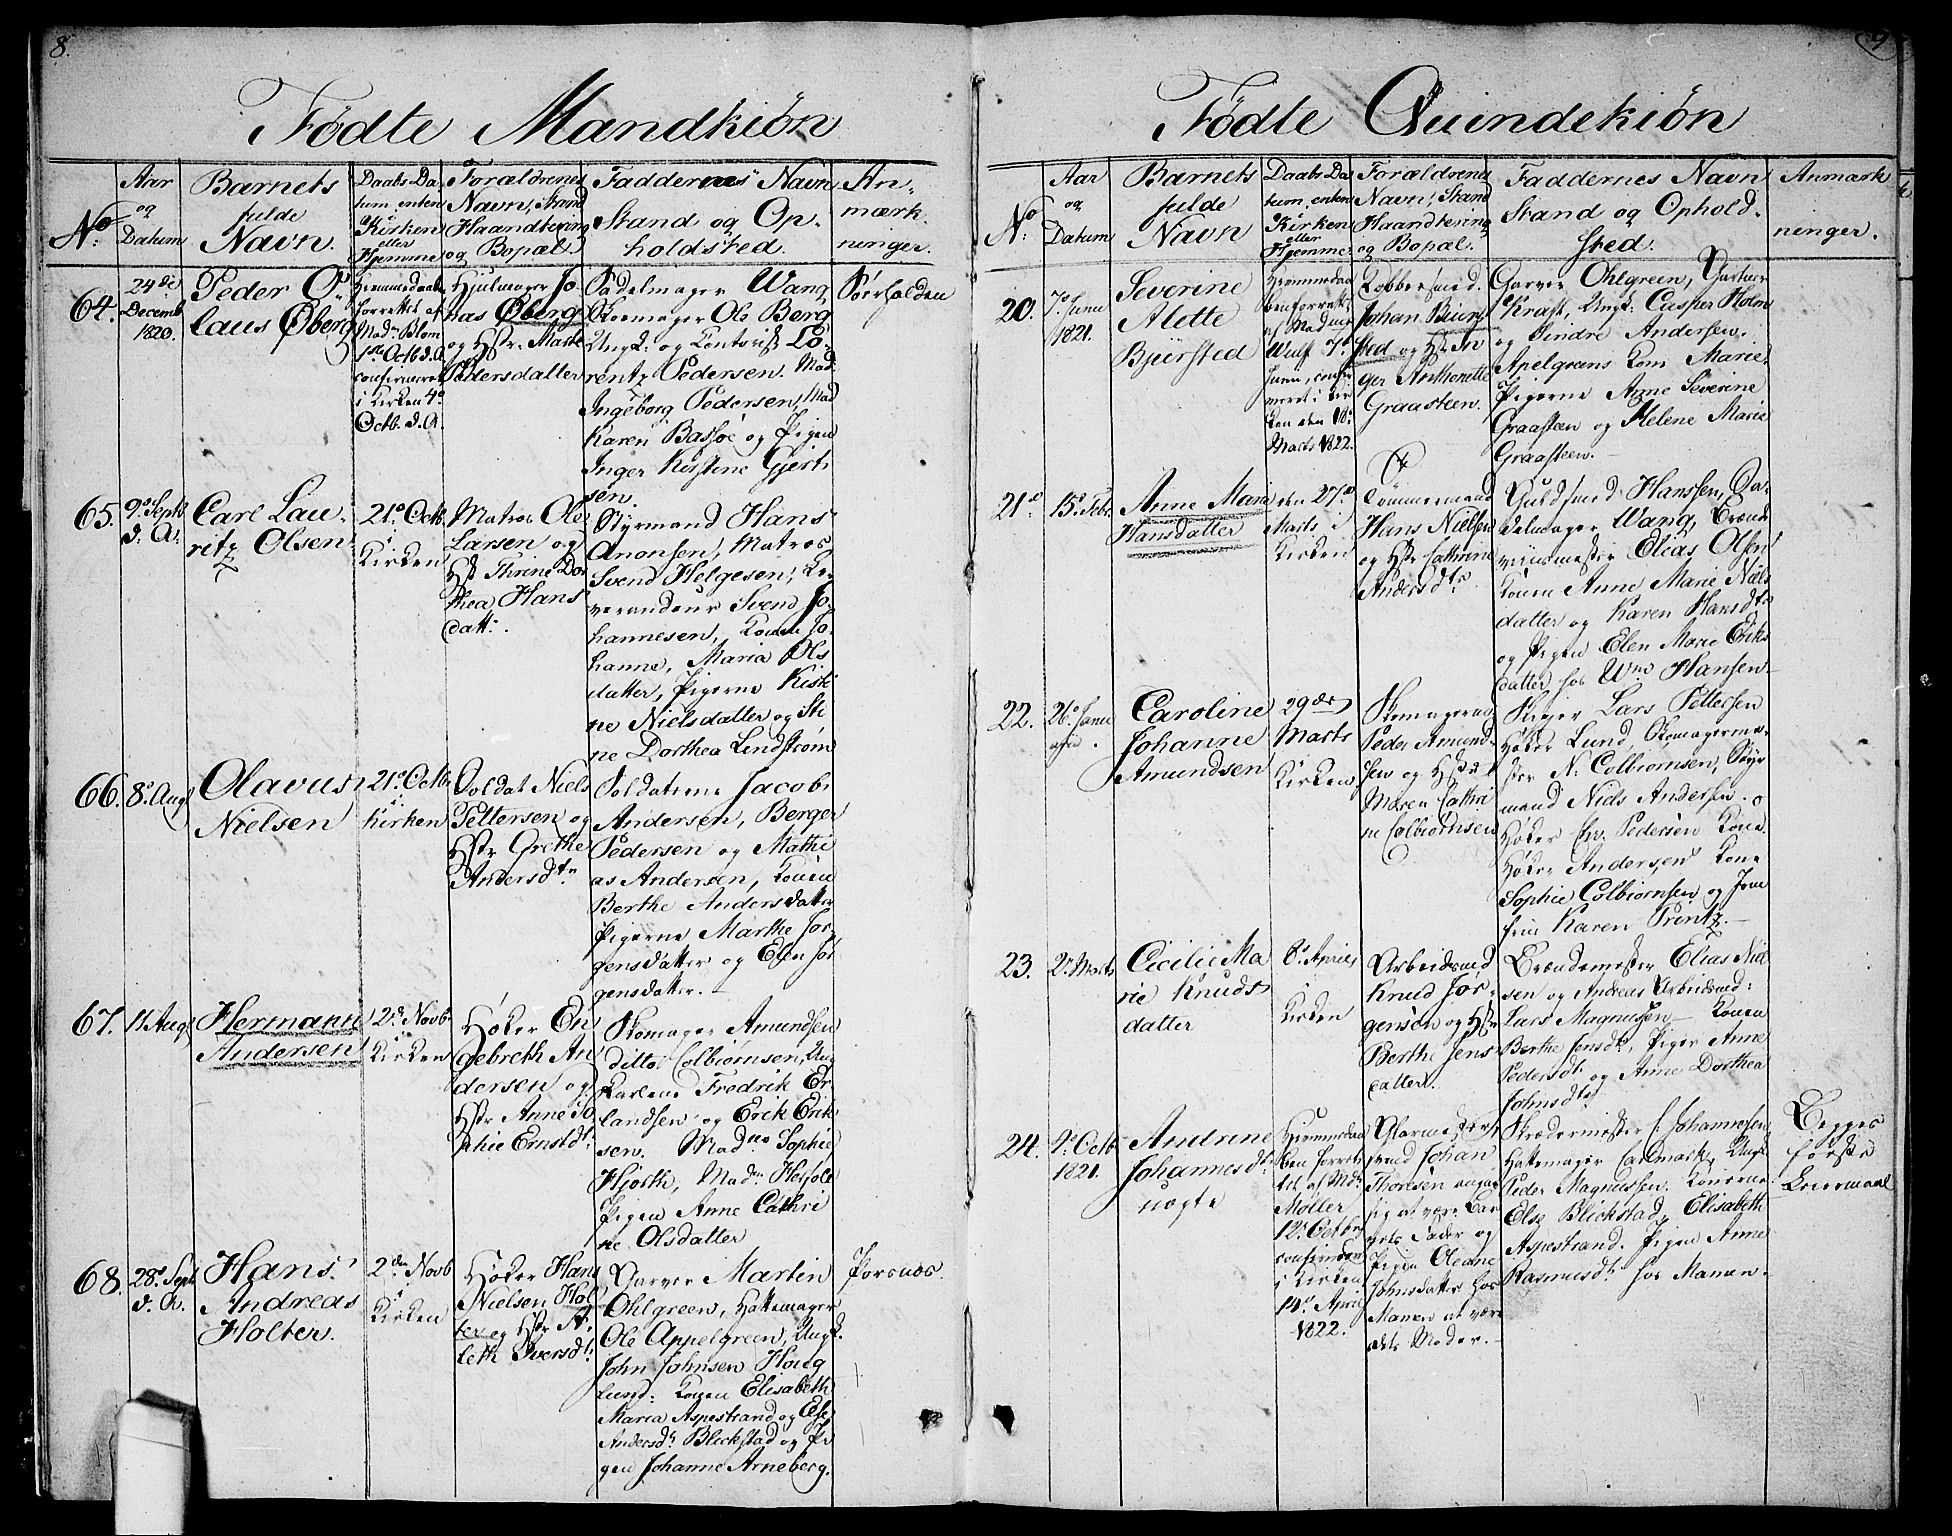 8.
Fødte Mandkiøn
No:
Aar
og
Datum
Barnets
fulde
Navn.
Daabs Da
tum, enten
i Kirken
eller
Hjemme
Forældrenes
Navn, Stand
Haandtering
og Bopæl.
Faddernes Navn
Stand og Op-
holdsted.
An-
mærk-
ninger.
64.
24de
Decemb
1820.
Peder O-
laus Øberg
Hjemmedaaben
forrettet af
Mad: Blom
1ste Octb. d. A.
confirmeret
i Kirken 4o
Octb. d. A.
Hjulmager Jo-
nas Øberg
og Hstr: Marthe
Pedersdatter
Sadelmager Wang
Skomager Ole Berg
Ungk: og Contorist Lo-
rentz Pedersen. Mad.
Ingeborg Pedersen, Mad
Karen Bassøe og Pigen
Inger Kirstine Gjerts
sen.
65.
9o Septb
d. A.
Carl Lau-
ritz Olsen
21o Octb.
i
Kirken
Matros Ole
Larsen og
Hst Thrine Do
thea Hans
datt.
Styrmand Hans
Aronsen, Matros
Svend Helgesen,
Svend Jo-
hannesen, Konen Jo-
hanne, Maria Ols
datter, Pigerne Kisti
ne Nielsdatter og Sti
ne Dorthea Lindstrøm
66.
8o Aug
Olavus
Nielsen
21o Octb.
i
Kirken
Soldat Niels
Pettersen og
Hstr Grethe
Andersdtr
Soldaterne Jacob
Andersen, Berger
Pedersen og Mathi
as Andersen, Konen
Berthe Andersdatter
Pigerne Marthe Jør-
gensdatter og Elen Jør
gensdatter.
67.
11 Aug
Hermann
Andersen
2d Novb
i
Kirken
Høker En
gebreth An
dersen og
Hstr Anne So
phie Ernstdt.
Skomager Amundsen
ditto Colbiørnsen, Ung
karlene Fredrik Er
landsen og Erik Erik
sen. Madme Sophie
Hjorth, Mad.
Pigen Anne Cathri
ne Olsdatter
68.
28o Sept
d. A.
Hans
Andreas
Holter.
2den Novb
i
Kirken
Høker Hans
Nielsen Hol
ter og Hstr A-
leth Iversdt.
Garver Martin
Ohlgreen, Hattemager
Ole Appelgreen, Ungk.
John Johnsen Houg
lund: Konen Elisabeth
Maria Aspestrand og Else
Andersdt. Blickstad og Pi
gen Johanne Arneberg.
9
Fødte Quindekiøn
No
Aar
og
Datum
Barnets
fulde
Navn
Daabs Da
tum, enten
i Kirken
eller
Hjemme.
Forældrenes
Navn, Stand
Haandtering
og Bopæl.
Faddernes Navn
Stand og Ophold-
sted.
Anmærk
ninger.
20.
7o Junii
1821.
Severine
Alette
Bjürsted
Hjemmedaa
ben forrettet
af Madme
Wulf 7de
Junii, confir
meret i Kir
ken den 18o
Marts 1822.
Kobbersmed
Johan Biur
sted og Hst: In
ger Anthonette
Graasteen.
Garver Ohlgreen,
Kraft, Ungk: Casper Holm
og Sindre Andersen.
Apelgreens Kone Marie.
Pigerne Anne Severine
Graasteen og Helene Marie
Graasteen.
21o
15o Febr
Anne Marie
Hansdatter
den 27o
Marts i
Kirken
Tømmermand
Hans Nielsen
og Hstr Cathrine
Andersdtr
Guldsmed Hanssen, Sa-
delmager Wang, Brænde-
viinsmester Elias Olsen
Konen Anne Marie Niels
datter og Karen Hansdtr
og Pigen Elen Marie Eriks
datter hos Wm Hansen
22.
26o Janu
Caroline
Johanne
Amundsen
29de
Marts
i
Kirken
Skomageren
Peder Amund-
sen og Hstr
Maren Cathri
ne Colbiørnsen
Lars Pettersen
Høker Lund, Skomagerme-
ster N: Colbiørnsen, Styr
mand Niels Andersen.
Høker Chr. Pedersen Kone
Høker Andersens Kone
Sophie Colbiørnsen og Jom
fru Karen Trintz.
23.
2o Marts
Cicilie Ma
rie Knuds
datter
8o April
i
Kirken
Arbeidsmd
Knud Jør-
gensen og Hstr
Berthe Jens
datter.
Brændemester Elias Niel
sen og Andreas Arbeidsmd:
Lars Magnussen. Konen
Berthe Jensdt, Piger Anne
Pedersdt og Anne Dorthea
Johnsdt
24.
4o Octb
1821.
Andrine
Johannesdt.
uægte
Hjemmedaa
ben forret
tet af Md.
Møller
12o Octbr
confirmeret
i Kirken
14o April
1822.
Glarmester
svend Johan
Thoresen angav
sig at være Bar
nets Fader og
Pigen Oleane
Johnsdatter hos
Manen at være
dets Moder.
Skrædermester J. Johannesen
Hattemager Carlmark, Ungk.
Peder Magnussen. Konerne
Else Blickstad, Elisabeth
Aspestrand. Pigen Anne
Rasmusdt. hos Manen.
Begges
første
Leiermaal